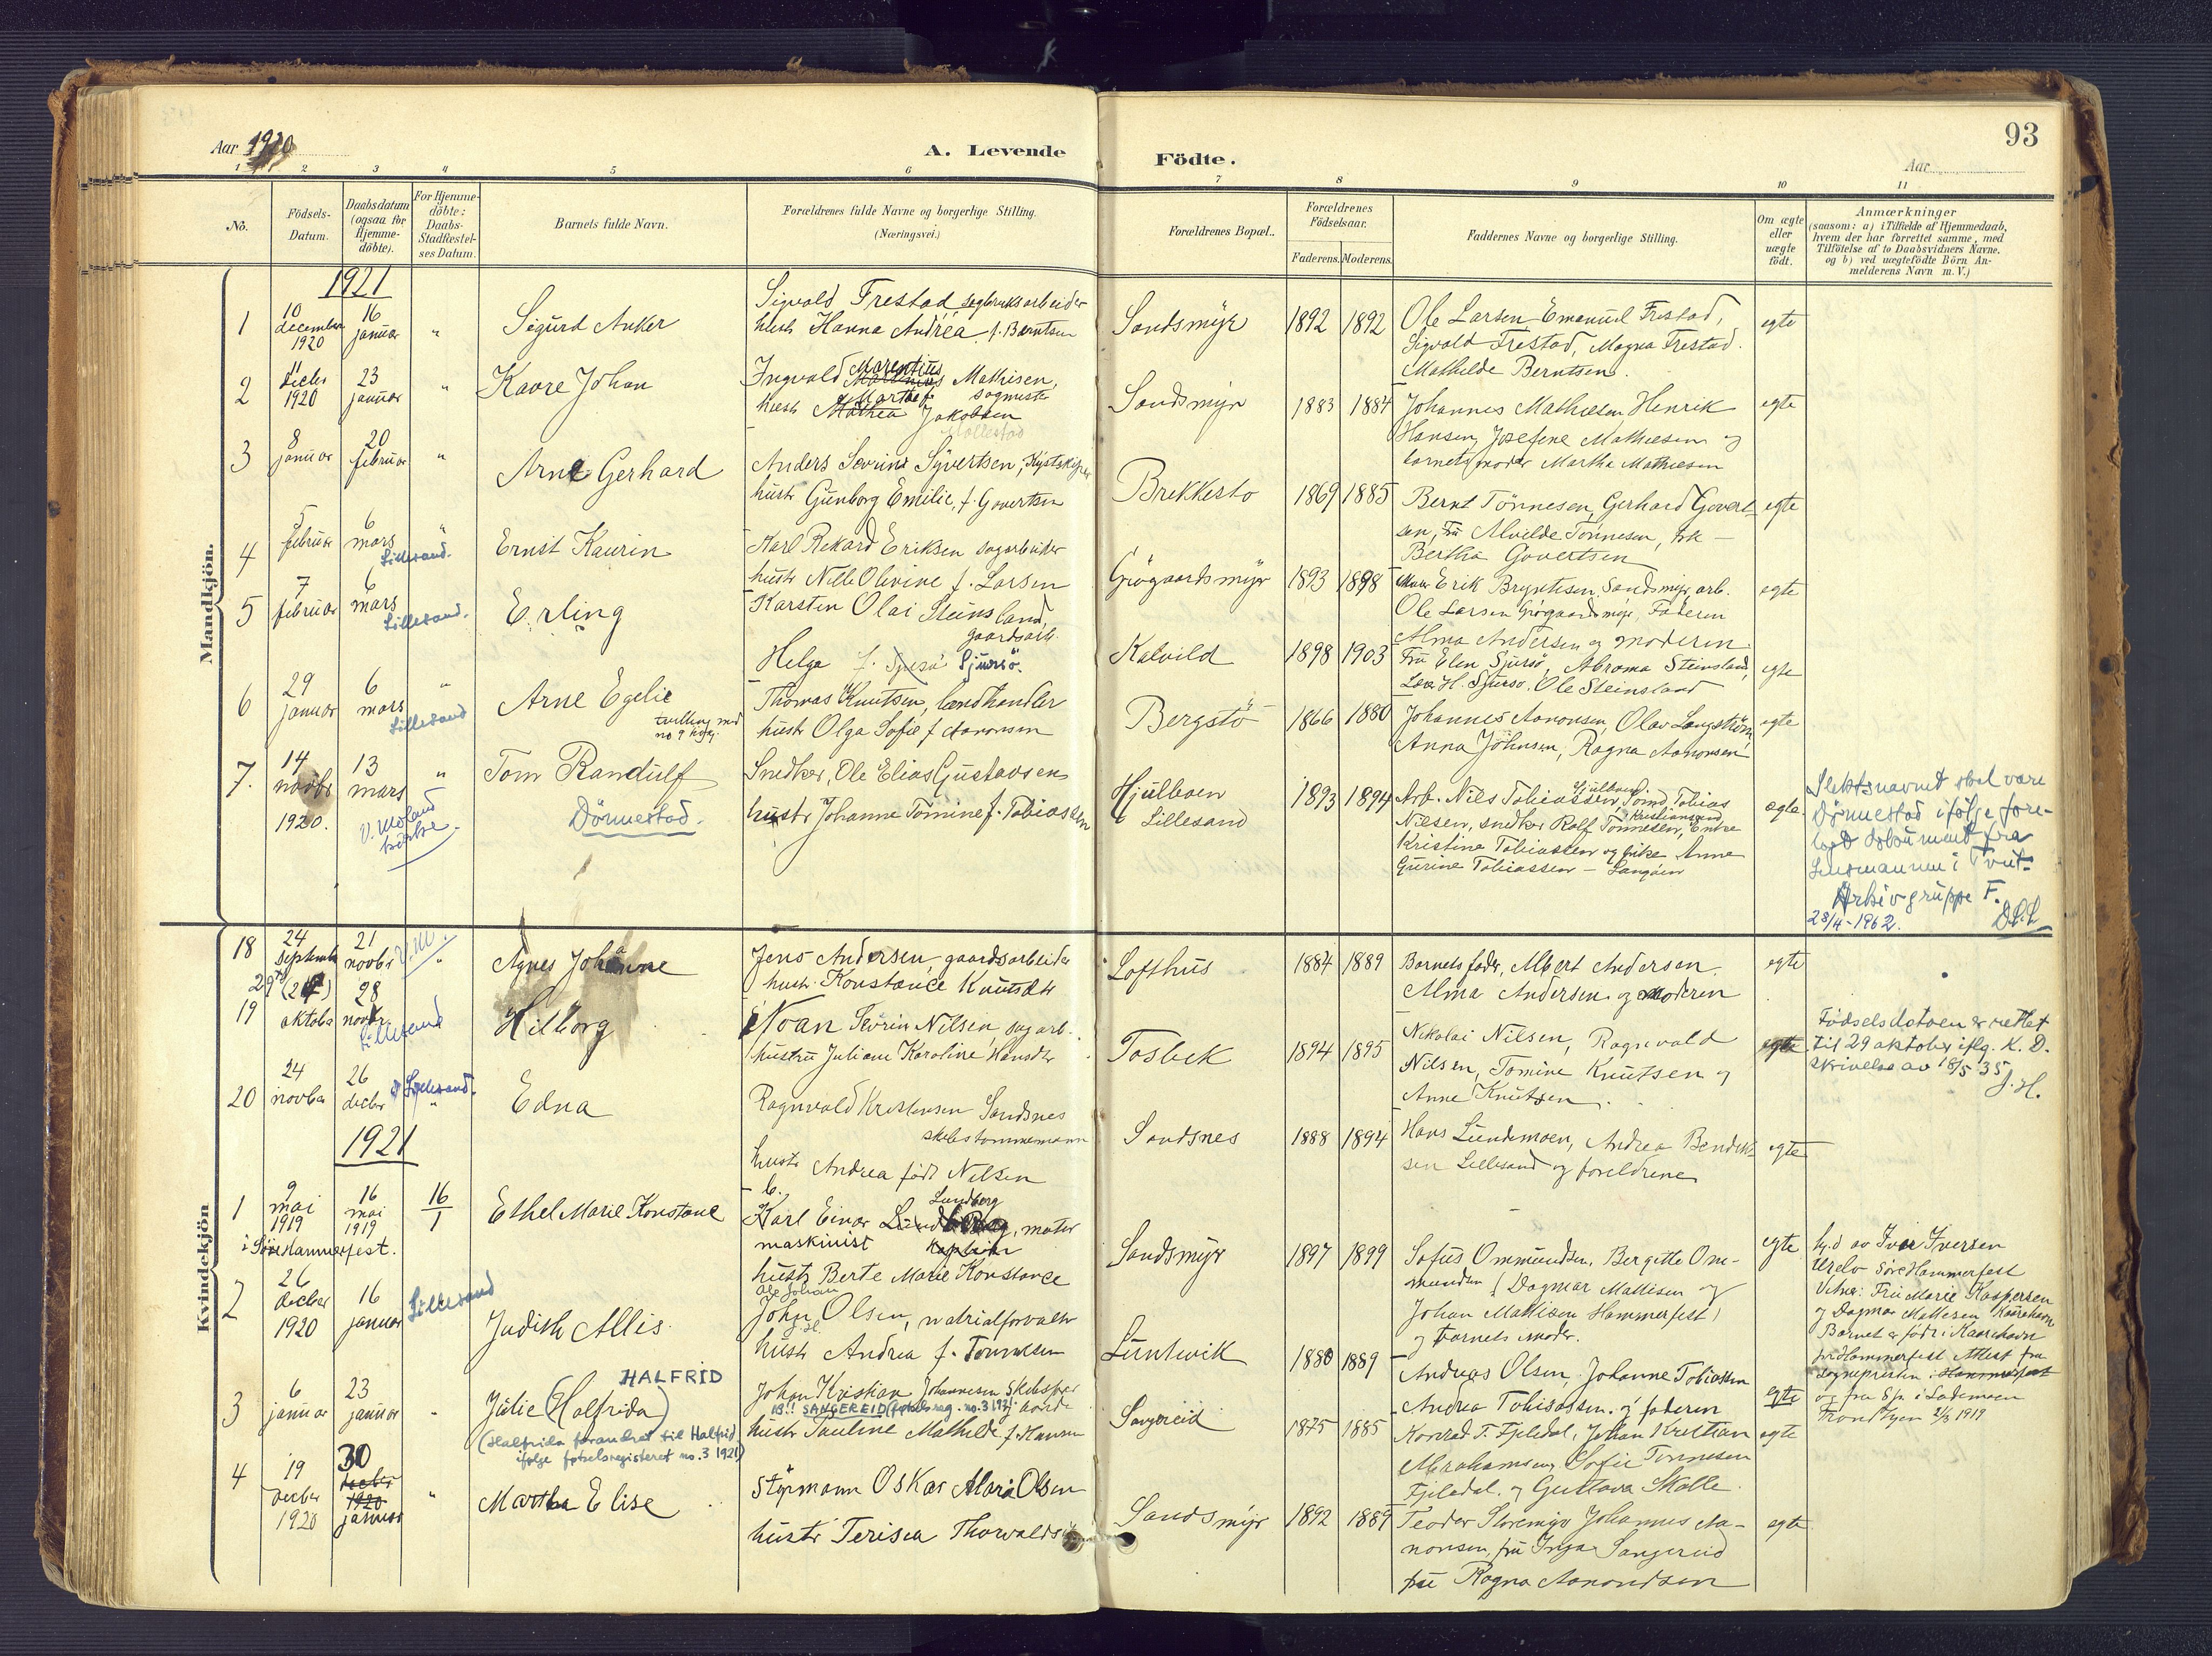 Aar 1920
A. Levende
Födte.
Aar
93
1 2 3 4 5 6 7 8 9 10 11
No.
Födsels-
Datum.
Daabsdatum
(ogsaa for
Hjemme-
döbte).
For Hjemme-
döbte:
Daabs-
Stadfæstel-
ses Datum.
Barnets fulde Navn.
Forældrenes fulde Navne og borgerlige Stilling.
(Næringsvei.)
Forældrenes Bopæl..
Forældrenes
Födselsaar.
Faderens.
Moderens.
Faddernes Navne og borgerlige Stilling.
Om ægte
eller
uægte
födt.
Anmærkninger
(saasom: a) i Tilfælde af Hjemmedaab,
hvem der har forrettet samme, med
Tilföielse af to Daabsvidners Navne.
og b) ved uægtefödte Börn An-
melderens Navn m. V.)
Mandkjön.
1921
1
10
december
1920
16
januar
"
Sigurd Anker
Sigvald Frestad sagbruksarbeider
hustr Hanna Andrea f. Berntsen
Sandsmyr
1892
1892
Ole Larsen Emanuel Frestad,
Sigvald Frestad, Magna Frestad.
Mathilde Berntsen.
egte
2
11
decbr
1920
23
januar
"
Kaare Johan
Ingvald Marentius Mathisen,
hustr Martha f. Jakobsen
Sandsmyr
1883
1884
Johannes Mathiesen Henrik
Hansen, Josefine Mathiesen og
barnets moder Martha Mathiesen
egte
3
8
januar
20
februar
"
Arne Gerhard
Anders Severin Syvertsen, Kystskipper
hustr Gunborg Emilie, f. Govertsen
Brekkestø
1869
1885
Bernt Tönnesen, Gerhard Govert-
sen, Fru Alvilde Tönnesen, frk
Bertha Govertsen
egte
4
5
februar
6
mars
"
Lillesand.
Ernst Kaurin
Karl Rikard Eriksen sagarbeider
hustr Nille Olivine f. Larsen
Grögaardsmyr
1893
1898
Erik Bryntesen Sandsmyr, arb.
Ole Larsen Grögaardsmyr, Faderen
Alma Andersen og moderen
egte
5
7
februar
6
mars
Lillesand.
Erling
Karsten Olai Steinsland,
gaardsarb.
Helga f. Sjursö.
Kalvild
1898
1903
Fru Elen Sjursö, Abroma Steinsland,
H. Sjursö, Ole Steinsland
egte
6
29
januar
6
mars
"
Lillesand
Arne Egelie
tvilling med
no 9 kvkj.
Thomas Knutsen, landhandler
hustr Olga Sofie f Aaronsen
Bergstö
1866
1880
Johannes Aaronsen, Olav Langström,
Anna Johnsen, Ragna Aaronsen
egte
7.
14
novbr
1920.
13
mars
"
V. Moland
kirke.
Tom Randulf
Dönnestad.
Snedker, Ole Elias Gustavsen
hustr Johanne Tomine f. Tobiassen
Hjulboen
Lillesand
1893
1894
Arb. Nils Tobiassen, Hjulboen, Tobias
Nilsen, snedker Rolf Tönnesen, Kristiansand, Enke
Kristine Tobiassen og frke Anne
Gurine Tobiassen – Langöen
ægte
Slektsnavnet skal være
Dönnestad ifölge fore-
lagt dokument fra
lensmannen i Tveit.
Arkivgruppe F.
28/4-1962.
Kvindekjön
18
24
September
21
novbr
V.M.
"
Agnes Johanne
Jens Andersen, gaardsarbeider
hustr. Konstance Knutsdtr
Lofthus
1884
1889
Barnets fader, Albert Andersen,
Alma Andersen og moderen
egte
19
29
oktober
28
novbr
Lillesand
Hilborg
Noan Severin Nilsen, sagarb.
hustru Juliane Karoline Hansdtr
Tosbek
1894
1895
Nikolai Nilsen, Ragnvald
Nilsen, Tomine Knutsen og
Anne Knutsen.
egte
Födselsdatoen er rettet
til 29 oktober iflg. K. D.
skrivelse av 18/5 35
J. H.
20
24
novber
26
decber
Lillesand.
"
Edna
Ragnvald Kristensen Sandsnes
skibstømmermann
hustr Andrea födt Nilsen
Sandsnes
1888
1894
Hans Lundemoen, Andrea Bendik-
sen Lillesand og foreldrene
egte
1921
1
9
mai
1919
16
mai
1919
16/1
i Söre Hammerfest.
Ethel Marie Konstance
Karl Einar Lundberg, motor
maskinist
hustr Berte Marie Konstance
Sandsmyr
1897
1899
Sofus Ommundsen, Bergitte Om-
mundsen (Dagmar Mathisen og
Johan Mathisen Hammerfest)
og barnets moder.
egte
hj.d av Iver Iversen
Söre Hammerfest
Vitner: Fru Marie Kaspersen
og Dagmar Mathisen Kaarehavn
Barnet er födt i Kaarehavn
Hammerfest Attest fra
sognepresten i Hammerfest
og fra Spr. i Lademoen
Trondhjem 2/3 1919
2
26
decber
1920
16
januar
Lillesand
Judith Allis
Ole Johan
John Olsen, matrialforvalter
hustr Andrea f. Tönnesen
Luntevik
1880
1889
Andreas Olsen, Johanne Tobiassen
Andrea Tobiassen og faderen
egte
3
6
januar
23
januar
HALFRID
Julie (Halfrida)
(Halfrida forandret til Halfrid
ifølge fødselsregisteret no. 3 1921)
Johan Kristian Johannesen Skibsfører
NB!! SANGEREID (fødselsreg. no. 3 1921)
hustr Pauline Mathilde f. Hansen
Sangereid
1875
1885
Konrad T. Fjeldal, Johan Kristian
Abrahamsen, Sofie Tönnesen
Fjeldal, og Gustava Skalle.
egte
4
19
decber
1920
30
decbr
1920
januar
"
Martha Elise
Støpmann Oskar Maria Olsen
hustr Terisea Thorvaldsen
Sandsmyr
1892
1889
Teodor Storemyr Johannes Aa-
nonsen, fru Inga Sangereid
fru Ragna Aanondsen
egte